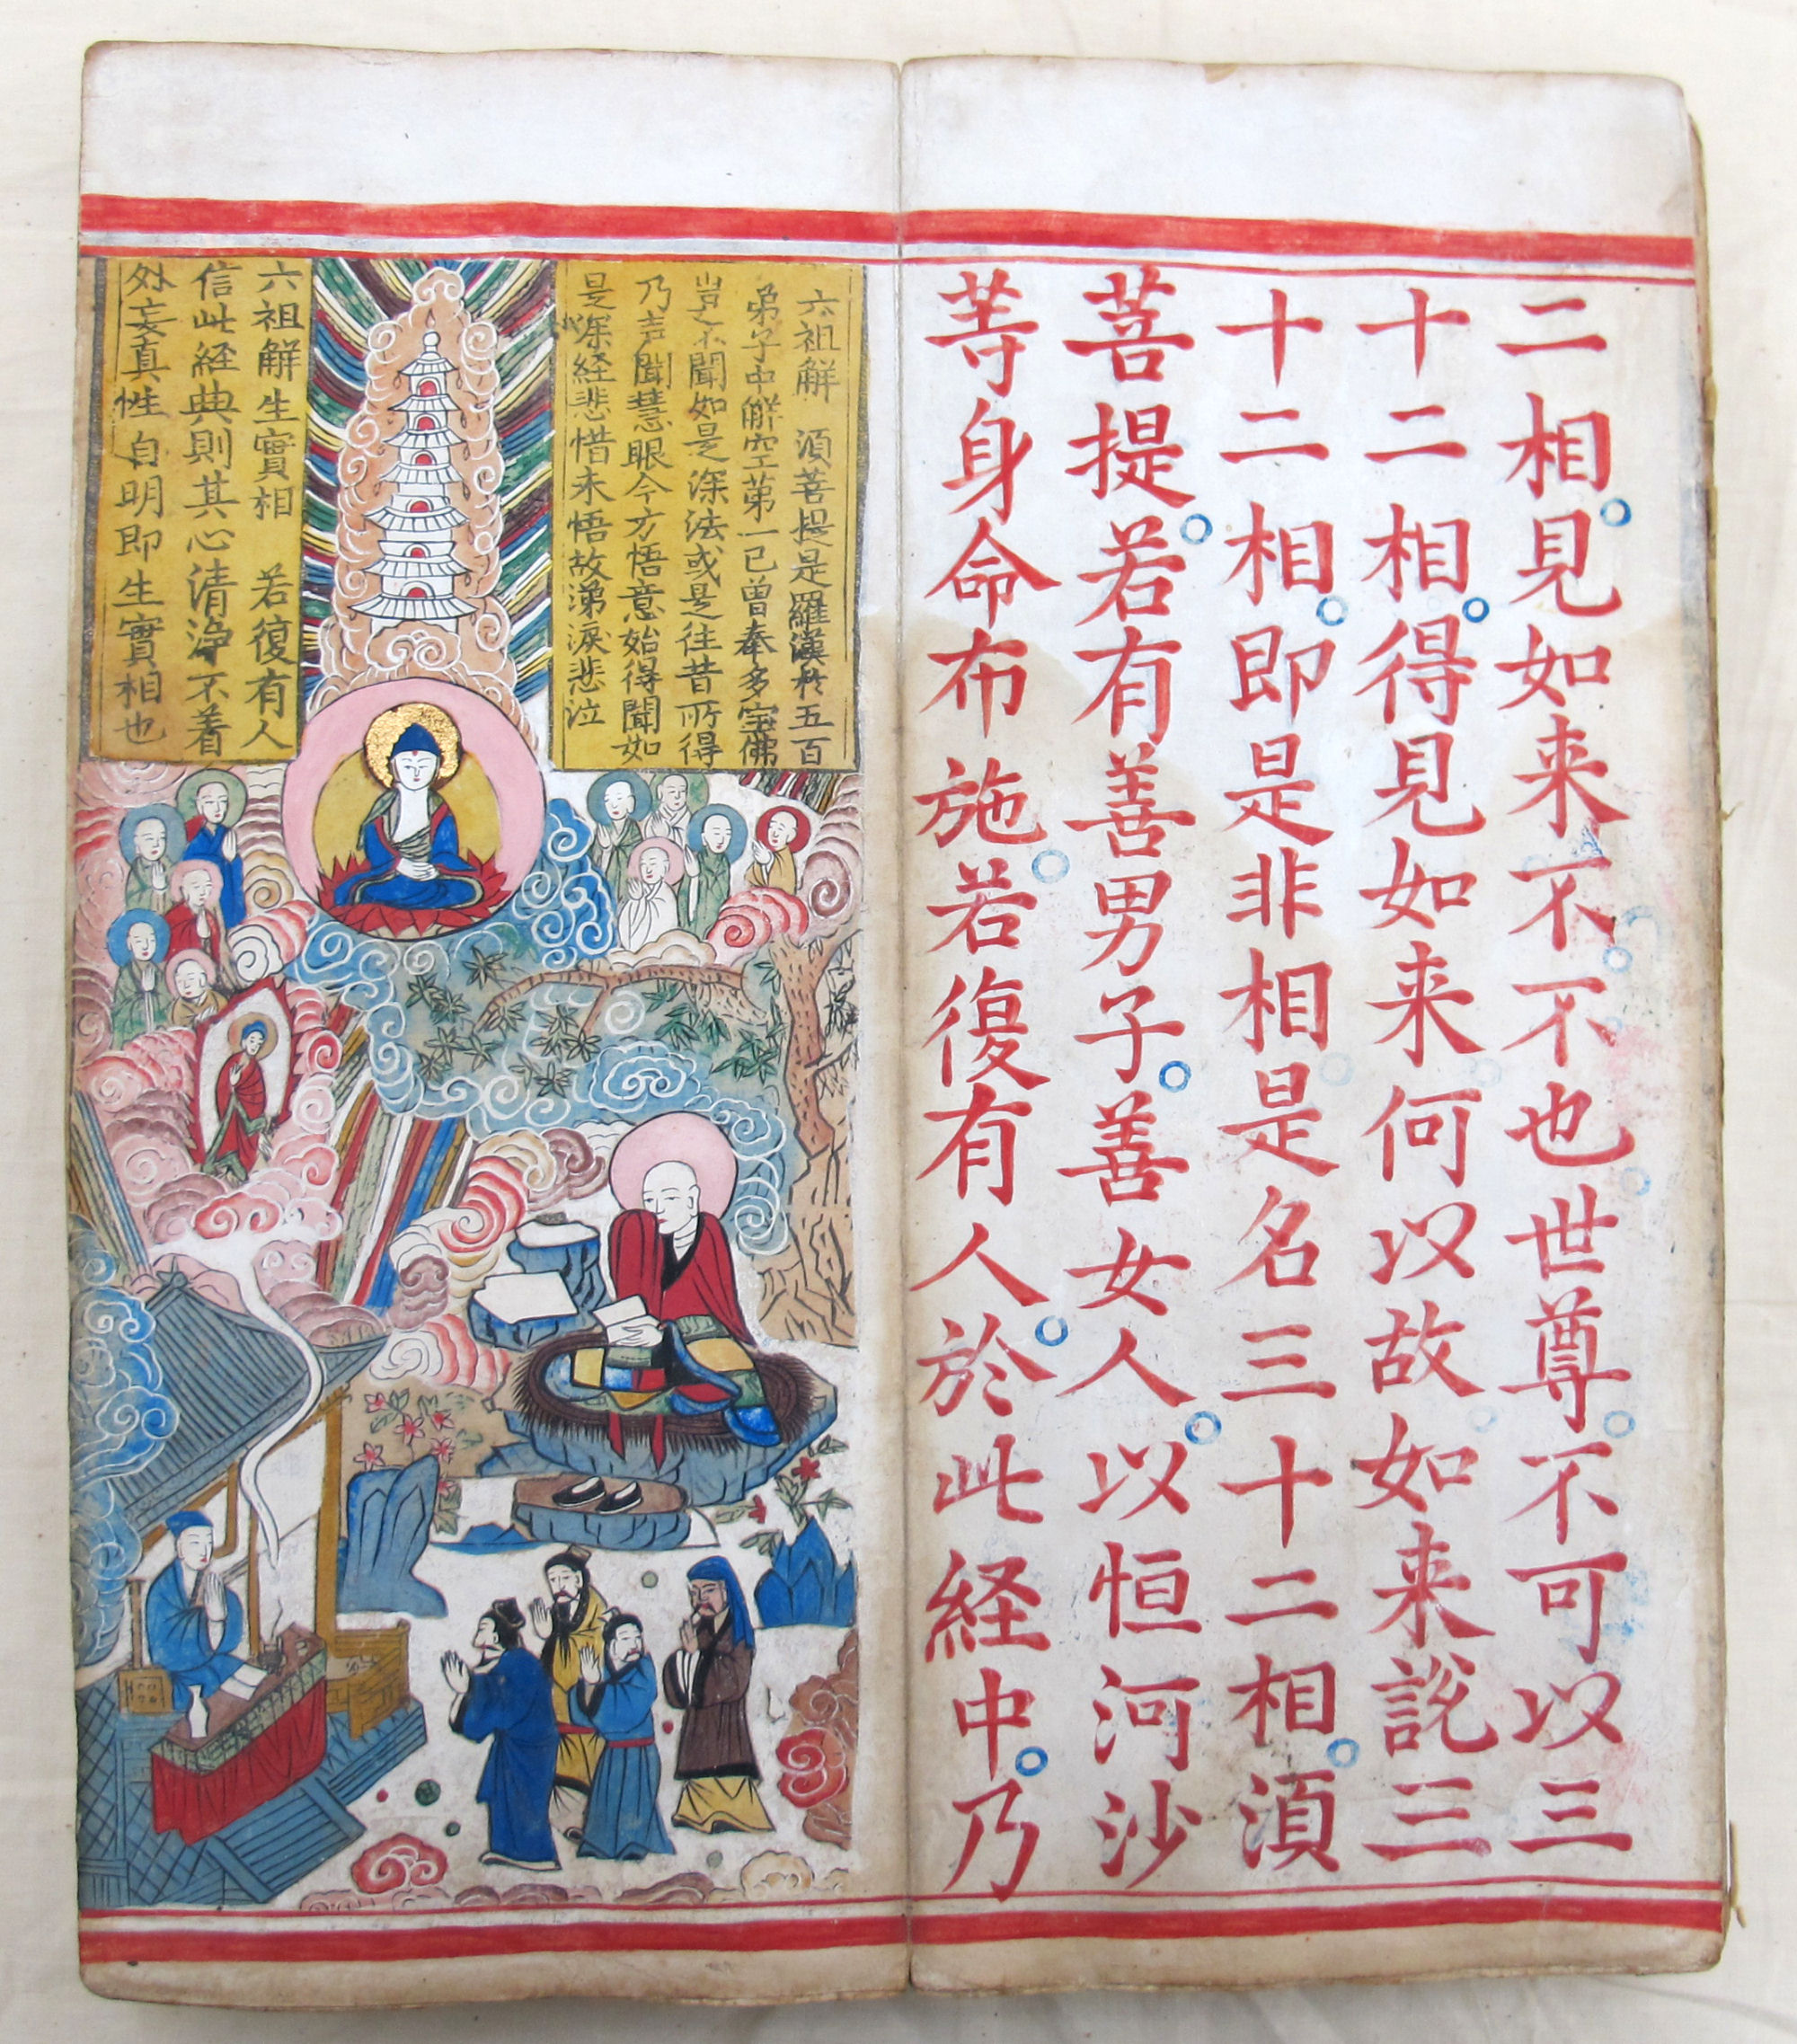 二相見如来不不也世尊不可以三
十二相得見如来何以故如来説三
十二相即是非相是名三十二相湏
菩提若有善男子善女人以恒河沙
䓁身命布施若復有人於此経中乃
六祖解　湏菩提是羅漢於五百
弟子中解空第一已曽奉多宝佛
豈不聞如是深法或是往昔所得
乃声聞慧眼今方悟意始得聞如
是深経悲惜未悟故涕淚悲泣
六祖解生實相　若復有人
信此経典則其心清浄不着
外妄真性自明即生實相也